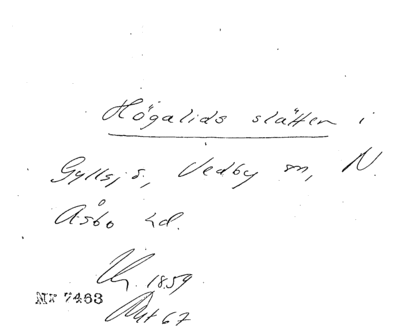 Högalids slätten i
Gyllsjö, Vedby sn, N.
Åsbo hd.
1859
Nr 7463
67